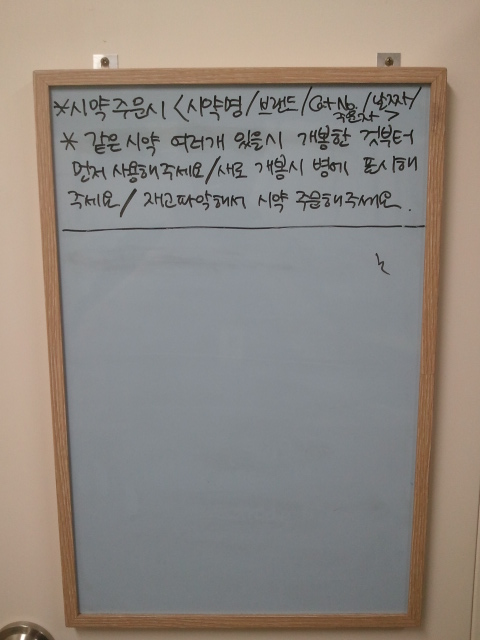 *시약주문시 <시약명/브랜드/Cat No./날짜/
주문자>
* 같은시약 여러개 있을시 개봉한 것부터
먼저 사용해주세요/새로 개봉시 병에 표시해
주세요/ 재고파악해서 시약 주문해주세요.